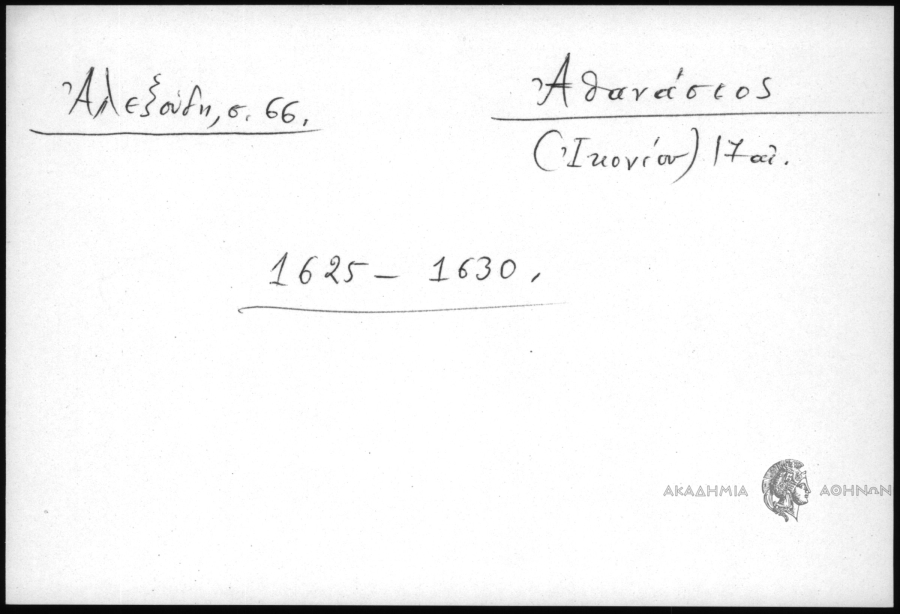 Ἀλεξούδη, σ. 66.
Ἀθανάσιος
(Ἰκονίου) 17 αἰ.
1625 – 1630.
ΑΚΑΔΗΜΙΑ ΑΘΗΝΩΝ